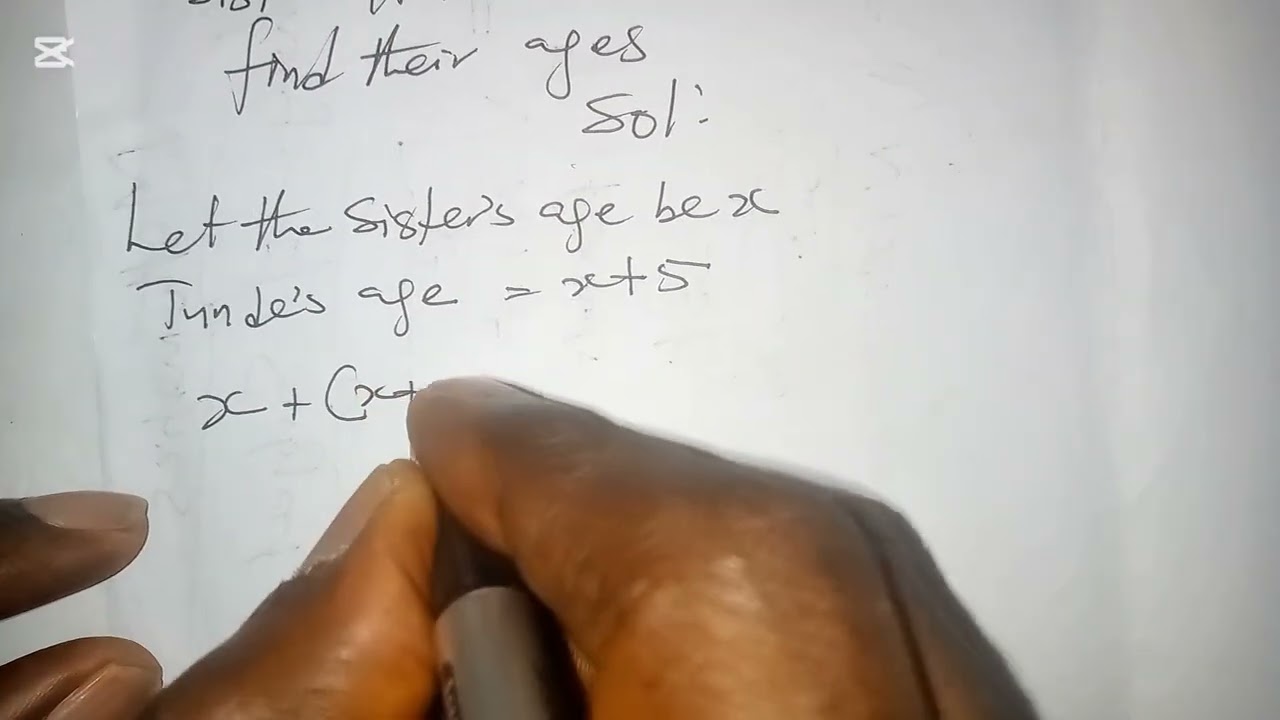 find their ages
Sol:
Let the Sister's age be x
Tunde's age = x+5
x + (x+